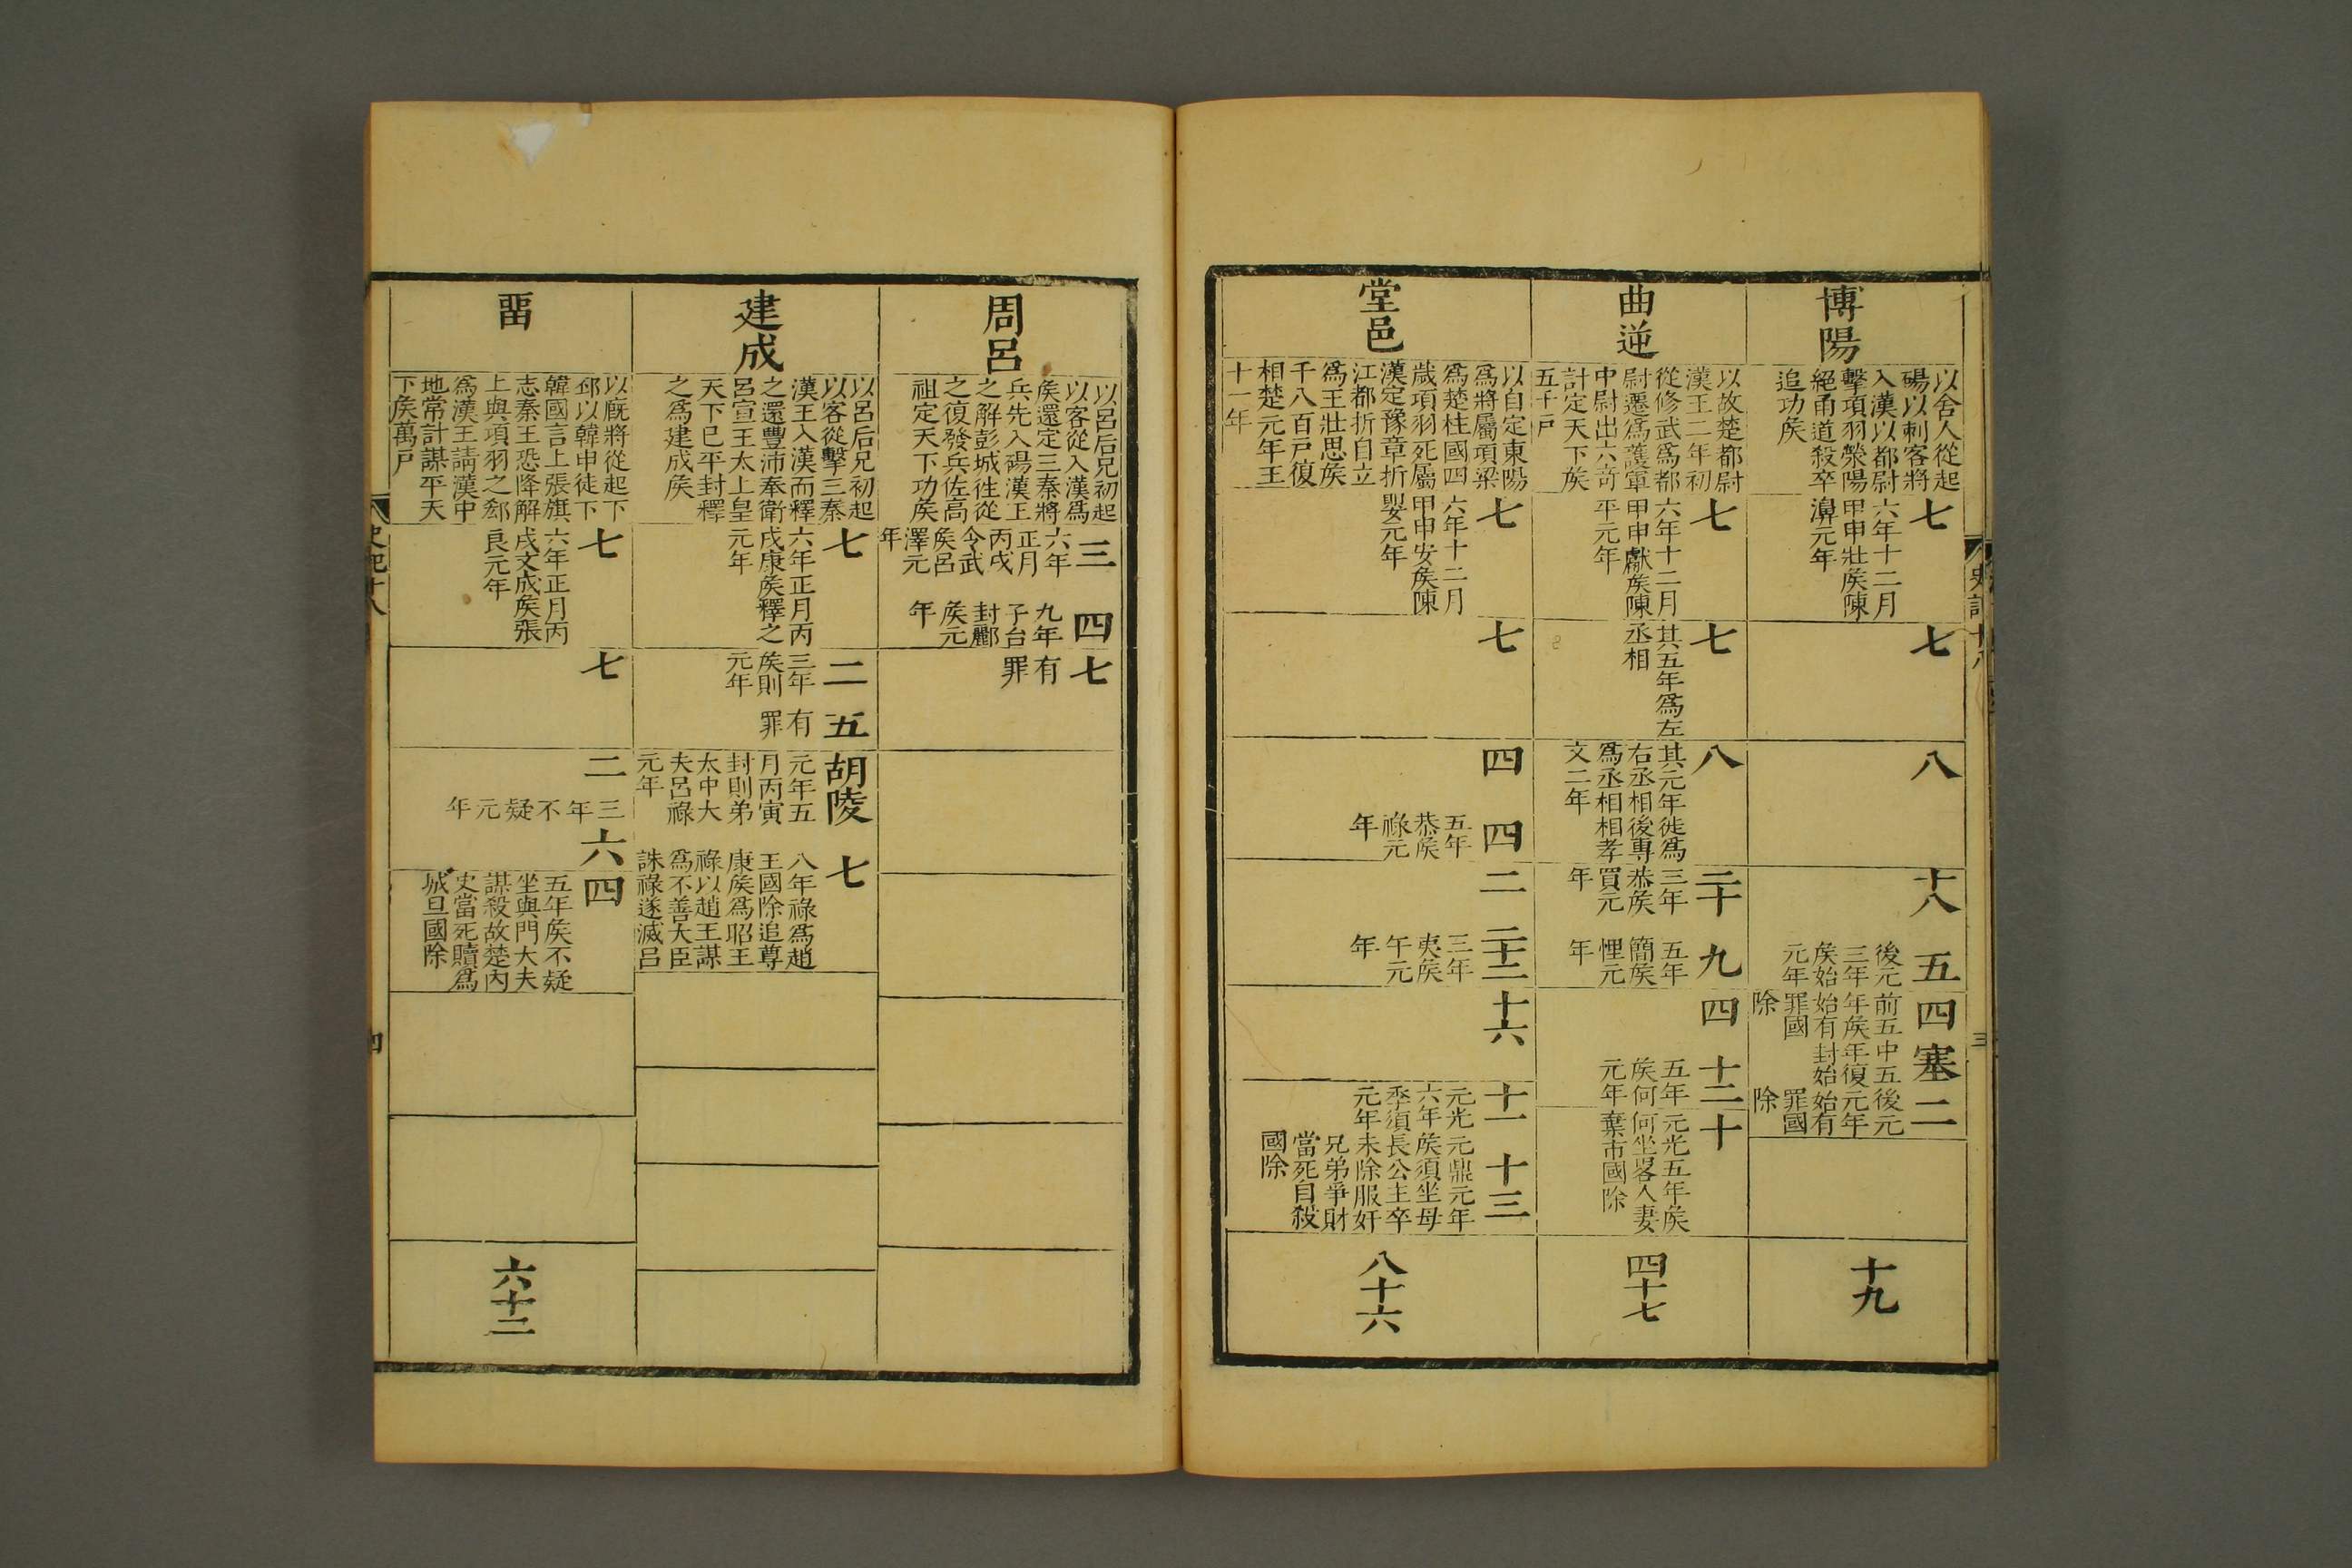 博陽
以舍人從起
碭以刺客將
入漢以都尉
擊項羽滎陽
絕甬道殺卒
追功矦
七
六年十二月
甲申壯矦陳
濞元年
七
八
十八
五
後元
三年
矦始
元年
四
前五
年矦
始有
罪國
除
塞
中五
年復
封始
二
後元
元年
始有
罪國
除
十九
曲逆
以故楚都尉
漢王二年初
從修武爲都
尉遷爲護軍
中尉出六奇
計定天下矦
五千戶
七
六年十二月
甲申獻矦陳
平元年
七
其五年爲左
丞相
八
其元年徙爲
右丞相後專
爲丞相相孝
文二年
二十
三年
恭矦
買元
年
九
五年
簡矦
悝元
年
四
十二
五年
矦何
元年
十
元光五年矦
何坐畧人妻
棄市國除
四十七
堂邑
以自定東陽
爲將屬項梁
爲楚柱國四
歲項羽死屬
漢定豫章折
江都折自立
爲王壯思矦
千八百戶復
相楚元年王
十一年
七
六年十二月
甲申安矦陳
嬰元年
七
四
四
五年
恭矦
祿元
年
二
二十二
三年
夷矦
午元
年
十六
十一
元光
六年
季須
元年
十三
元鼎元年
矦須坐母
長公主卒
未除服奸
兄弟爭財
當死自殺
國除
八十六
史記十八
三
周呂
以呂后兄初起
以客從入漢爲
矦還定三秦將
兵先入碭漢王
之解彭城徃從
之復發兵佐高
祖定天下功矦
三
六年
正月
丙戌
令武
矦呂
澤元
年
四
九年
子台
封酈
矦元
年
七
有
罪
建成
以呂后兄初起
以客從擊三秦
漢王入漢而釋
之還豐沛奉衛
呂宣王太上皇
天下已平封釋
之爲建成矦
七
六年正月丙
戌康矦釋之
元年
二
三年
矦則
元年
五
有
罪
胡陵
元年五
月丙寅
封則弟
太中大
夫呂祿
元年
七
八年祿爲趙
王國除追尊
康矦爲昭王
祿以趙王謀
爲不善大臣
誅祿遂滅呂
畱
以廐將從起下
邳以韓申徒下
韓國言上張旗
志秦王恐降解
上與項羽之郄
爲漢王請漢中
地常計謀平天
下矦萬戶
七
六年正月丙
戌文成矦張
良元年
七
二
三年不疑元年
六
四
五年矦不疑
坐與門大夫
謀殺故楚內
史當死贖爲
城旦國除
六十二
史記十八
四